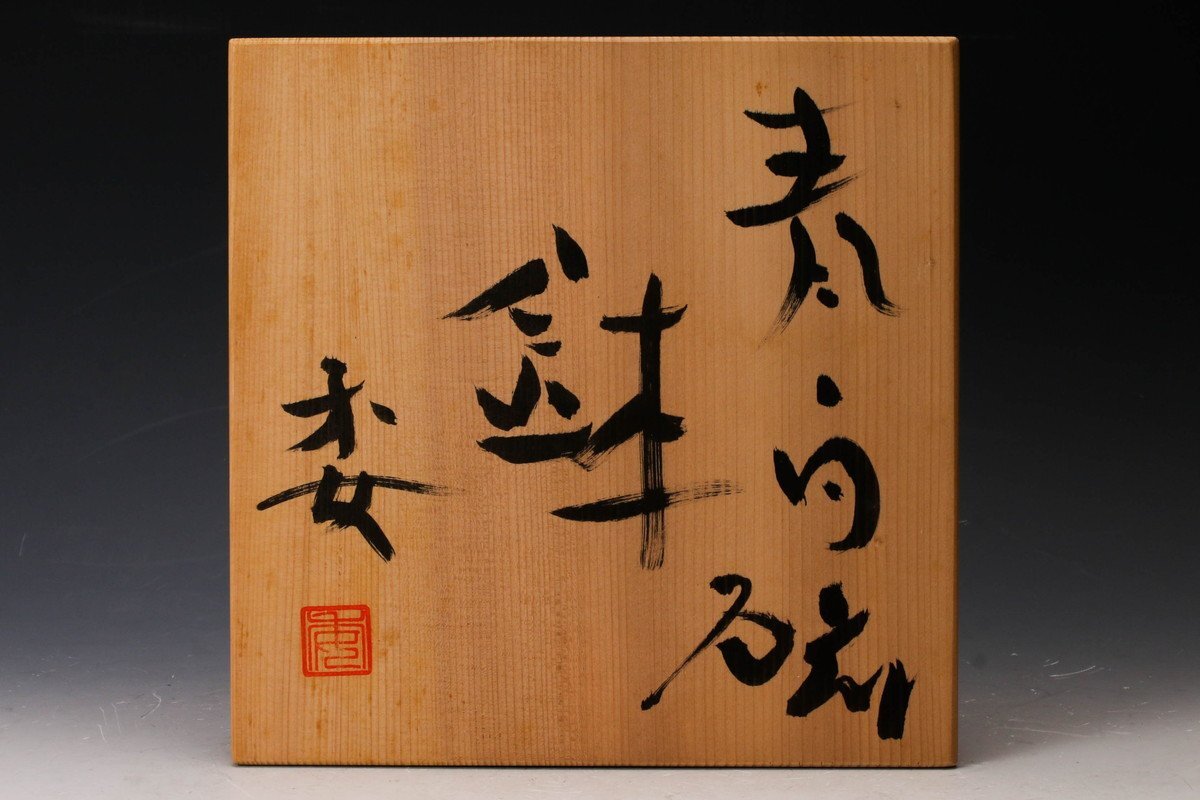 青白磁
鉢
委